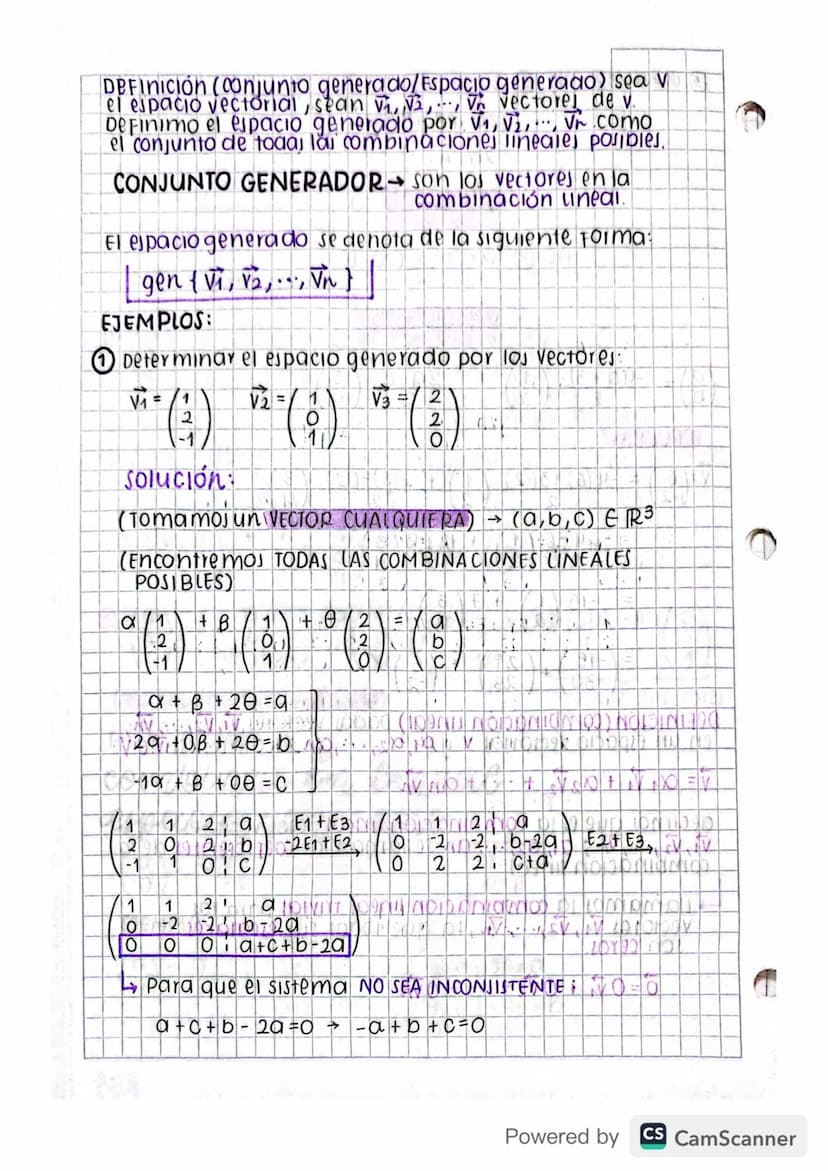 DEFINICIÓN (conjunto generado/Espacio generado) sea V
el espacio vectorial, sean v⃗1, v⃗2, ..., v⃗n vectores de V.
DEFINIMO el espacio generado por v⃗1, v⃗2, ..., v⃗n como
el conjunto de todas las combinaciones lineales posibles.
CONJUNTO GENERADOR → son los vectores en la
combinación lineal.
El espacio generado se denota de la siguiente forma:
gen { v⃗1, v⃗2, ..., v⃗n }
EJEMPLOS:
① Determinar el espacio generado por los vectores:
v⃗1 = (1 2 -1) v⃗2 = (1 0 1) v⃗3 = (2 2 0)
SOLUCIÓN:
(Tomamos un VECTOR CUALQUIERA) → (a,b,c) ∈ ℝ³
(Encontremos TODAS LAS COMBINACIONES LINEALES
POSIBLES)
α (1 2 -1) + β (1 0 1) + θ (2 2 0) = (a b c)
α + β + 2θ = a
2α + 0β + 2θ = b
-1α + β + 0θ = c
(1 1 2 ¦ a) E1+E3 (1 1 2 ¦ a)
(2 0 2 ¦ b) -2E1+E2 → (0 -2 -2 ¦ b-2a) E2+E3 →
(-1 1 0 ¦ c) (0 2 2 ¦ c+a)
(1 1 2 ¦ a)
(0 -2 -2 ¦ b-2a)
(0 0 0 ¦ a+c+b-2a)
↳ Para que el sistema NO SEA INCONSISTENTE:
a+c+b-2a=0 → -a+b+c=0
Powered by CS CamScanner